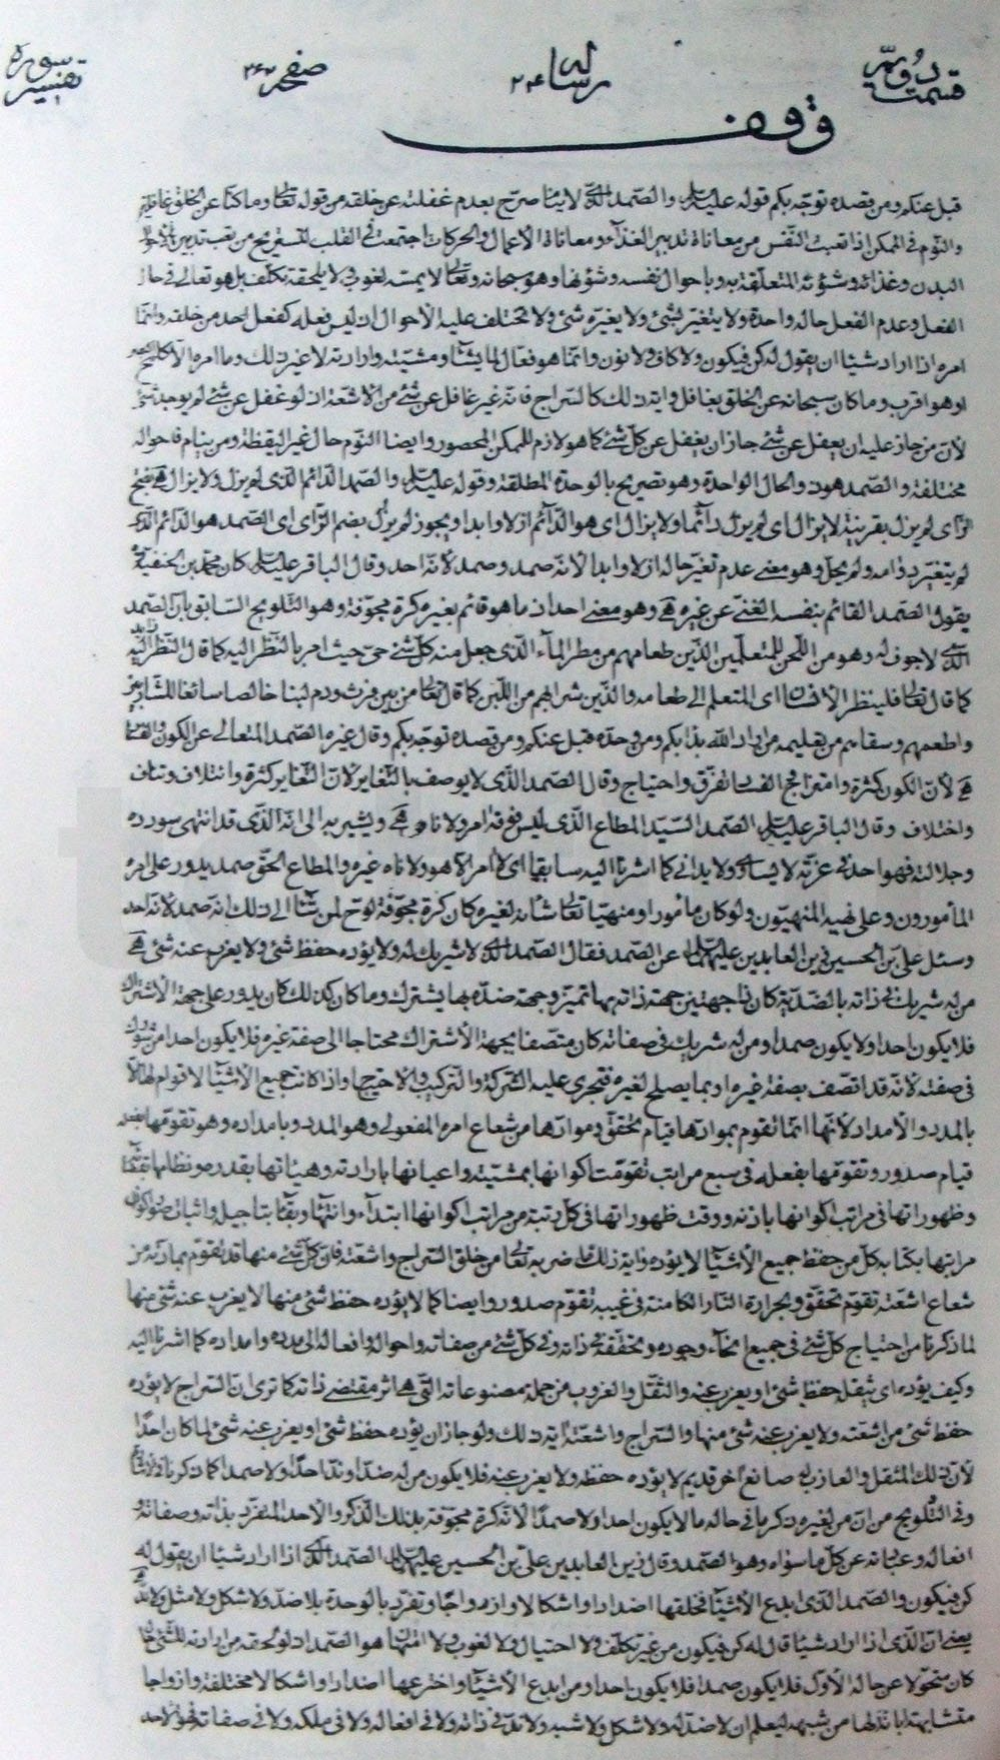 قسمت دويم رساله ٢٤ صفحه ٣٤٧ تفسير سوره
وقف
قبل عنكم ومن قصده توجّه بكم قوله عليه السلام والصّمد الّذى لا ينام صرّح بعدم غفلته عن خلقه من قوله تعالى وما كنّا عن الخلق غافلين
والنّوم فى الممكن اذا تعبت النّفس من معاناة تدبير الغذآء ومعاناة الاعمال والحركات اجتمعت فى القلب لتستريح من تعب تدبير
البدن وغذائه وشؤنه المتعلّقة به وباحوال نفسه وشؤنها وهو سبحانه وتعالى لا يمسّه لغوب ولا يلحقه تكلّف بل هو تعالى فى حال
الفعل وعدم الفعل حاله واحدة ولا يتغيّر بشئ ولا يغيّره شئ ولا تختلف عليه الاحوال اذ ليس فعله كفعل احد من خلقه وانّما
امره اذا اراد شيئا ان يقول له كن فيكون ولا كاف ولا نون وانّما هو فعّال لما يشآء ومشيّته وارادته لا غير ذلك وما امره الّا كلمح
او هو اقرب وما كان سبحانه عن الخلق بغافل واية ذلك كالسّراج فانّه غير غافل عن شئ من الاشعّة اذ لو غفل عن شئ لم يوجد
لانّ من جاز عليه ان يغفل عن شئ جاز ان يغفل عن كلّ شئ كما هو لازم للممكن المحصور وايضا النّوم حال غير اليقظة ومن ينام فاحواله
مختلفة والصّمد هو ذو الحال الواحدة وهو تصريح بالوحدة المطلقة وقوله عليه السلام والصّمد الدّائم الّذى لم يزل ولا يزال
الزّاى لم يزل بقرينة لا يزال اى لم يزل دآئما ولا يزال اى هو الدّآئم ازلا وابدا ويجوز لم يزُل بضم الزّاى اى الصّمد هو الدّائم الّذى
لم يتغيّر دوامه ولم يحل وهو معنى عدم تغيّر حاله ازلا وابدا لانّه صمد وصمد لانّه احد وقال الباقر عليه السلام كان محمّد بن الحنفيّة
يقول الصّمد القائم بنفسه الغنىّ عن غيره وهو معنى احد اذ ما هو قائم بغيره كرة مجوّفة وهو التّلويح السّابق بانّ الصّمد
الّذى لا جوف له وهو من اللّحن للمتعلّمين الّذين طعامهم من مطر المآء الّذى جعل منه كلّ شئ حىّ حيث امر بالنّظر اليه
كما قال تعالى فلينظر الانسان اى المتعلم الى طعامه والّذين شرابهم من اللّبن كما قال تعالى من بين فرث ودم لبنا خالصا سائغا للشّاربين
واطعمهم وسقاهم من تعليمه من اراد اللّه بدأ بكم ومن وحّده قبل عنكم ومن قصده توجّه بكم وقال غيره الصّمد المتعالى عن الكون والفساد
لانّ الكون كثرة وامتزاج الفساد تفرّق واحتياج وقال الصّمد الّذى لا يوصف بالتّغاير لانّ التّغاير كثرة وائتلاف وتناف
واختلاف وقال الباقر عليه السلام الصّمد السّيّد المطاع الّذى ليس فوقه امر ولا ناه ويشير به الى انّه الّذى قد انتهى سودده
وجلالته فهو احد فى عزّته لا يساوى ولا يدانى كما اشرنا اليه سابقا اى لا امر الّا هو ولا ناه غيره والمطاع الحقّ صمد يدور على امره
المأمورون وعلى نهيه المنهيّون ولو كان مأمورا ومنهيّا تعالى شأنه لغيره كان كرة مجوّفة لوّح لمن شآء الى ذلك انّه صمد لانّه احد
وسئل علىّ بن الحسين زين العابدين عليهما السلام عن الصّمد فقال الصّمد الّذى لا شريك له ولا يؤده حفظ شئ ولا يعزب عنه شئ
من له شريك فى ذاته بالضّدّيّة كان ذا جهتين جهة ذاته بها تميّز وجهة ضدّه بها يشترك وما كان كذلك كان يدور على جهة الاشتراك
فلا يكون احدا ولا يكون صمدا ومن له شريك فى صفاته كان متّصفا بجهة الاشتراك محتاجا الى صفة غيره فلا يكون احدا
فى صفته لانّه قد اتّصف بصفة غيره او بما يصلح لغيره فتجرى عليه الشّركة والتركيب والاحتياج واذا كانت جميع الاشيآء لا قوام لها الّا
بالمدد والامداد لانّها انّما تقوم بموادّها قيام تحقّق وموادّها من شعاع امره المفعولى وهو المدد وبامداده وهو تقوّمها بفعله
قيام صدور وتقوّمها بفعله فى سبع مراتب تقوّمت اكوانها بمشيّته واعيانها بارادته وهيئاتها بقدره ونظامها بقضآئه
وظهوراتها فى مراتب اكوانها باذنه ووقت ظهوراتها فى كلّ رتبة من مراتب اكوانها ابتدآء وانتهآء وبقآء بتاجيله واثبات
مراتبها بكتابه كلّ من حفظ جميع الاشيآء لا يؤده واية ذلك ما ضربه تعالى من خلق السّراج واشعّته فانّ كلّ شئ منها قد تقوّم بمادّته من
شعاع اشعّته تقوّم تحقّق وبحرارة النّار الكامنة فى غيبه تقوّم صدور وايضا كما لا يؤده حفظ شئ منها لا يعزب عنه شئ منها
لما ذكرنا من احتياج كلّ شئ فى جميع انحآء وجوده وتحقّقه فى ذاته وفى كلّ شئ من صفاته واحواله وافعاله الى مدده وامداده كما اشرنا اليه
وكيف يؤده اى يثقل حفظ شئ او يعزب عنه والثّقل والعزوب من جملة مصنوعاته الّتى هى اثر مقتضى ذاته كما ترى انّ السّراج لا يؤده
حفظ شئ من اشعّته ولا يعزب عنه شئ منها والسّراج واشعّته اية ذلك ولو جاز ان يؤده حفظ شئ او يعزب عنه شئ لما كان احدا
لانّ ذلك المثقل والعازب له صانع آخر قديم لا يؤده حفظه ولا يعزب عنه فلا يكون من له ضدّ او ندّ احدا ولا صمدا كما ذكرنا
وفى التّلويح من انّ من لغيره ذكر ما فى حاله ما لا يكون احدا ولا صمدا لانّه كرة مجوّفة بذلك الذّكر والاحد المنفرد بذاته وصفاته
افعاله وعبادته عن كلّ ما سواه وهو الصّمد وقال زين العابدين علىّ بن الحسين عليهما السلام الصّمد الّذى اذا اراد شيئا ان يقول له
كن فيكون والصّمد الّذى ابدع الاشيآء فخلقها اضدادا واشكالا وازواجا وتفرّد بالوحدة بلا ضدّ ولا شكل ولا مثل ولا ندّ
يعنى انّ الّذى اذا اراد شيئا قال له كن فيكون من غير تكلّف ولا احتيال ولا لغوب ولا امتهان هو الصّمد اذ لو لحقه من ارادته للشّئ
كان متحوّلا عن حاله الاوّل فلا يكون صمدا فلا يكون احدا ومن ابدع الاشيآء واخترعها اضدادا واشكالا مختلفة وازواجا
متشابهة ابانة لها من شبهه ليعلم ان لا ضدّ له ولا شكل ولا شبه ولا ندّ فى ذاته ولا فى افعاله ولا فى ملكه ولا فى صفاته فهو الاحد